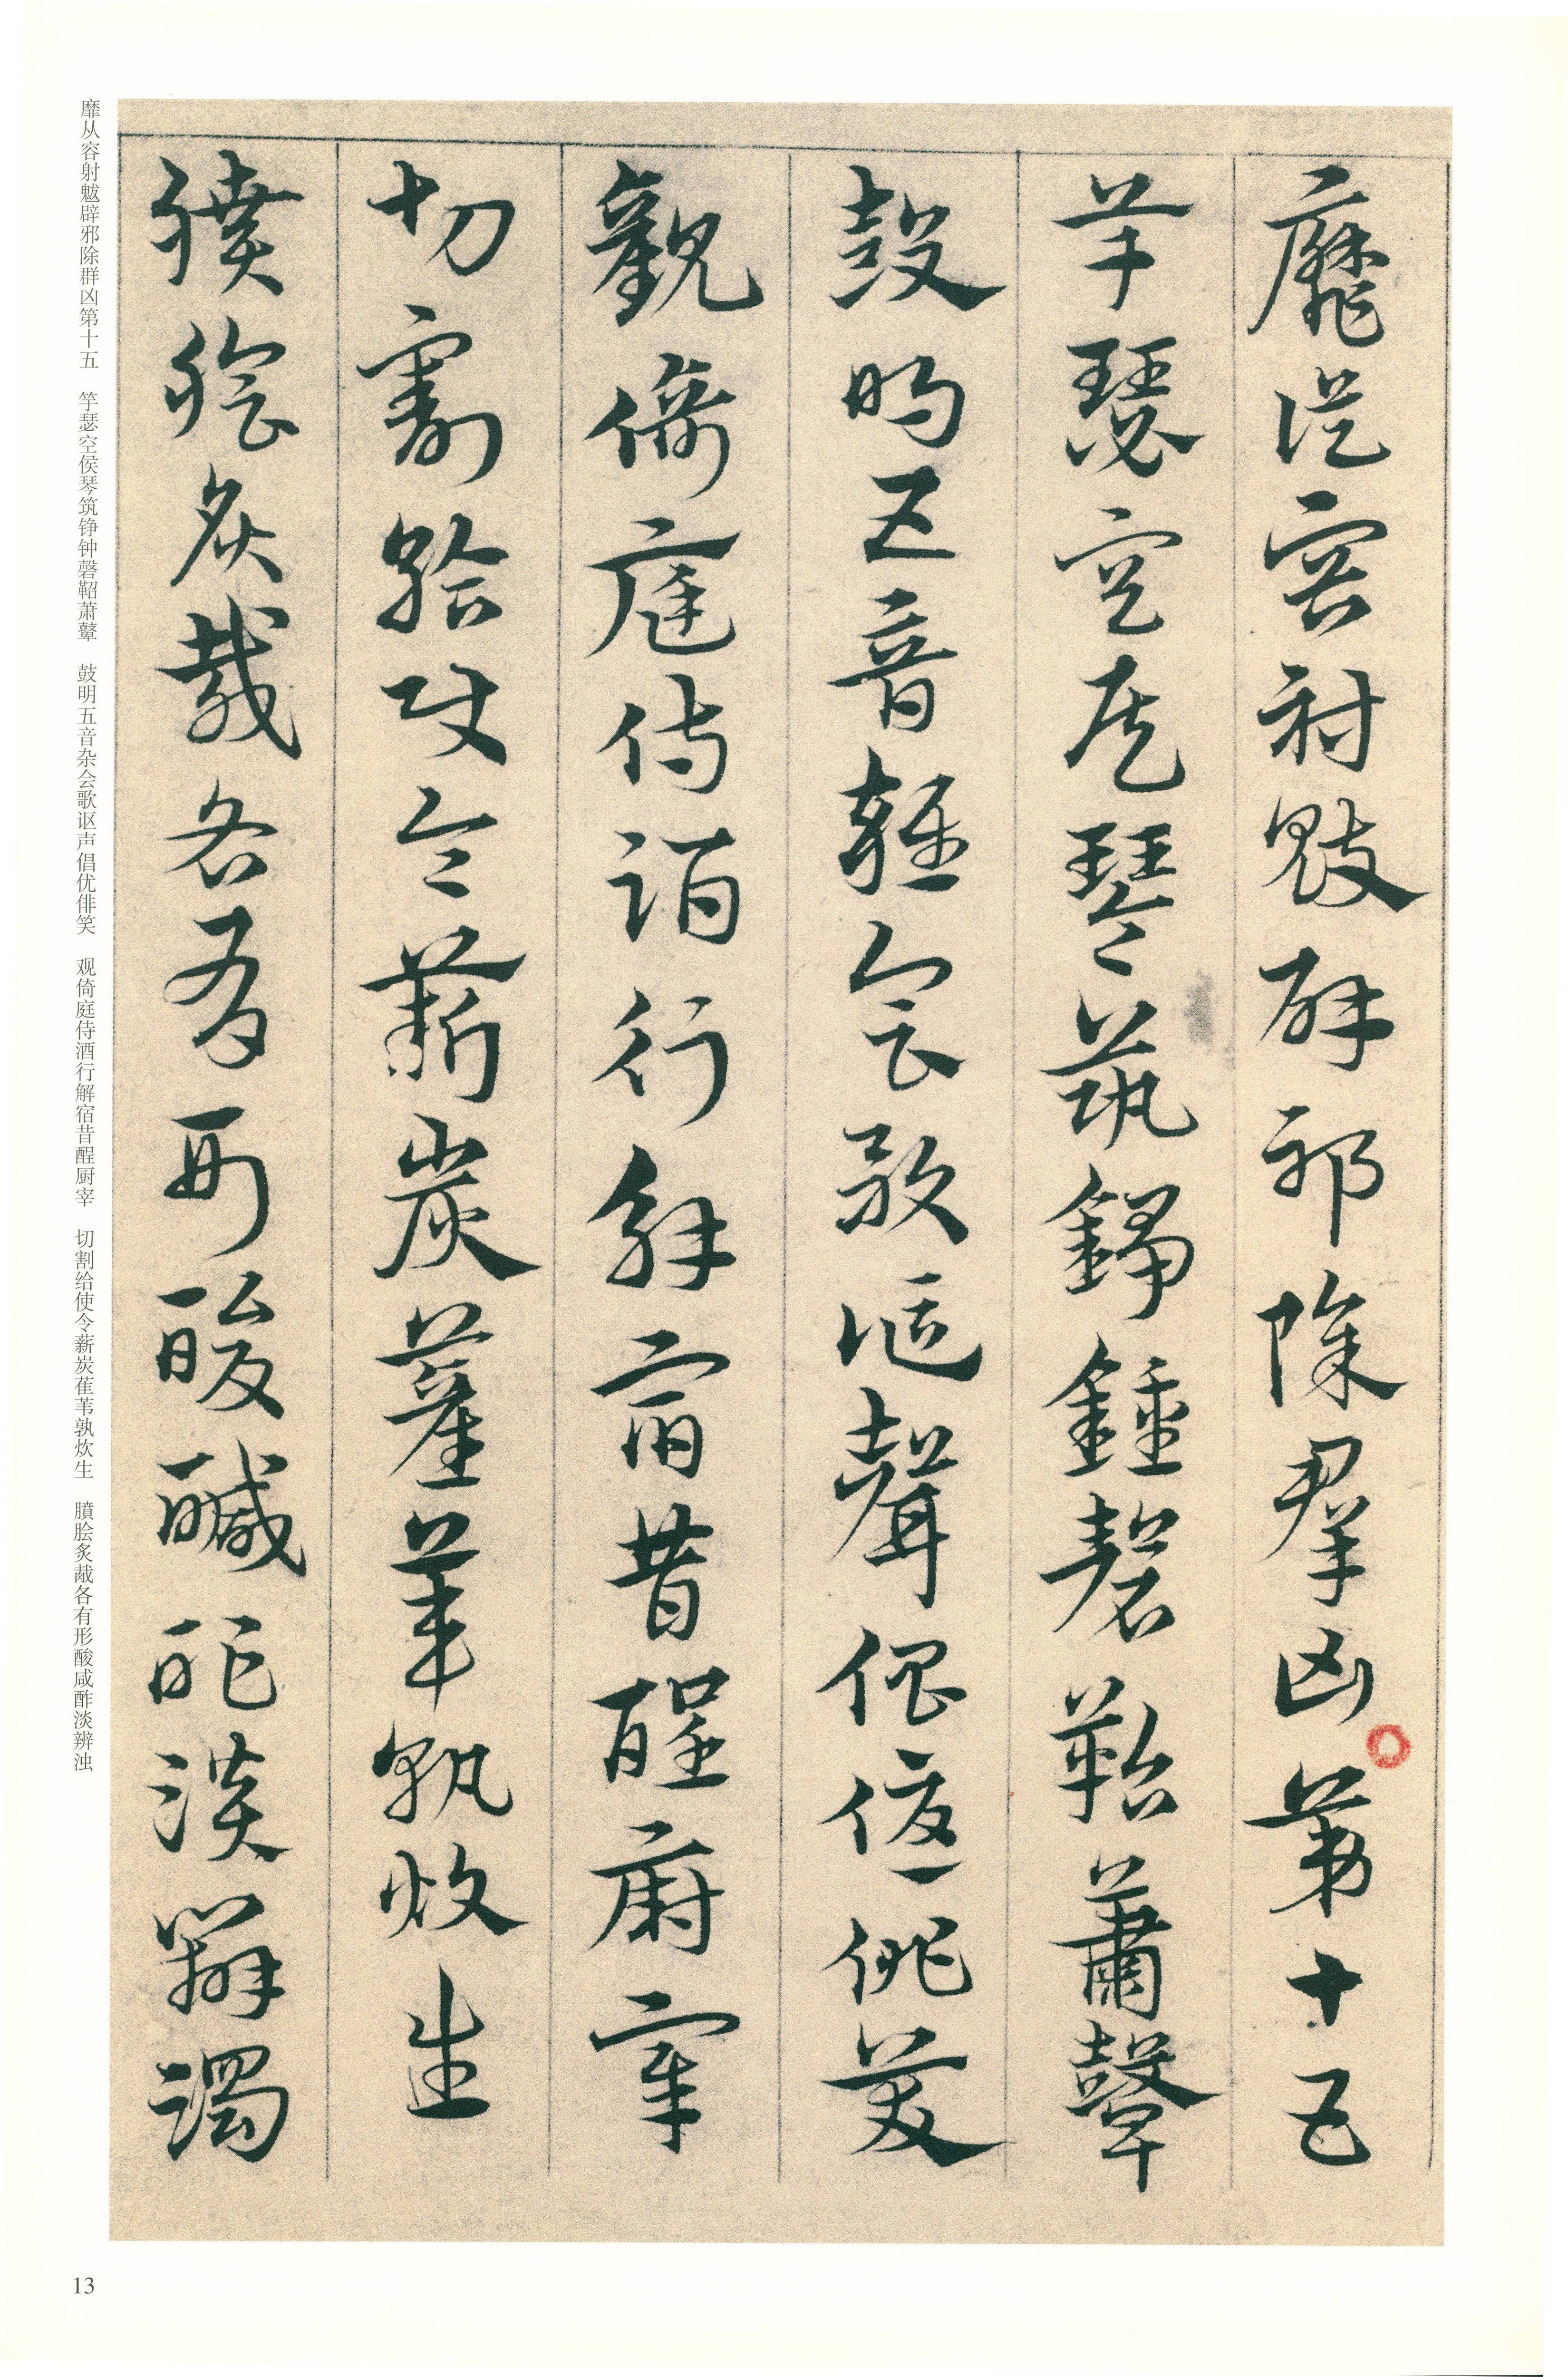 靡從容射魃辟邪除羣凶第十五
竽瑟空侯琴筑錚鍾磬鞀蕭鼙
鼓明五音雜會歌謳聲倡優俳笑
觀倚庭侍酒行解宿昔酲廚宰
切割給使令薪炭萑葦孰炊生
膹膾炙胾各有形酸醎酢淡辨濁
靡从容射魃辟邪除群凶第十五　竽瑟空侯琴筑铮钟磬鞀萧鼙　鼓明五音杂会歌讴声倡优俳笑　观倚庭侍酒行解宿昔酲厨宰　切割给使令薪炭萑苇孰炊生　膹脍炙胾各有形酸咸酢淡辨浊
13